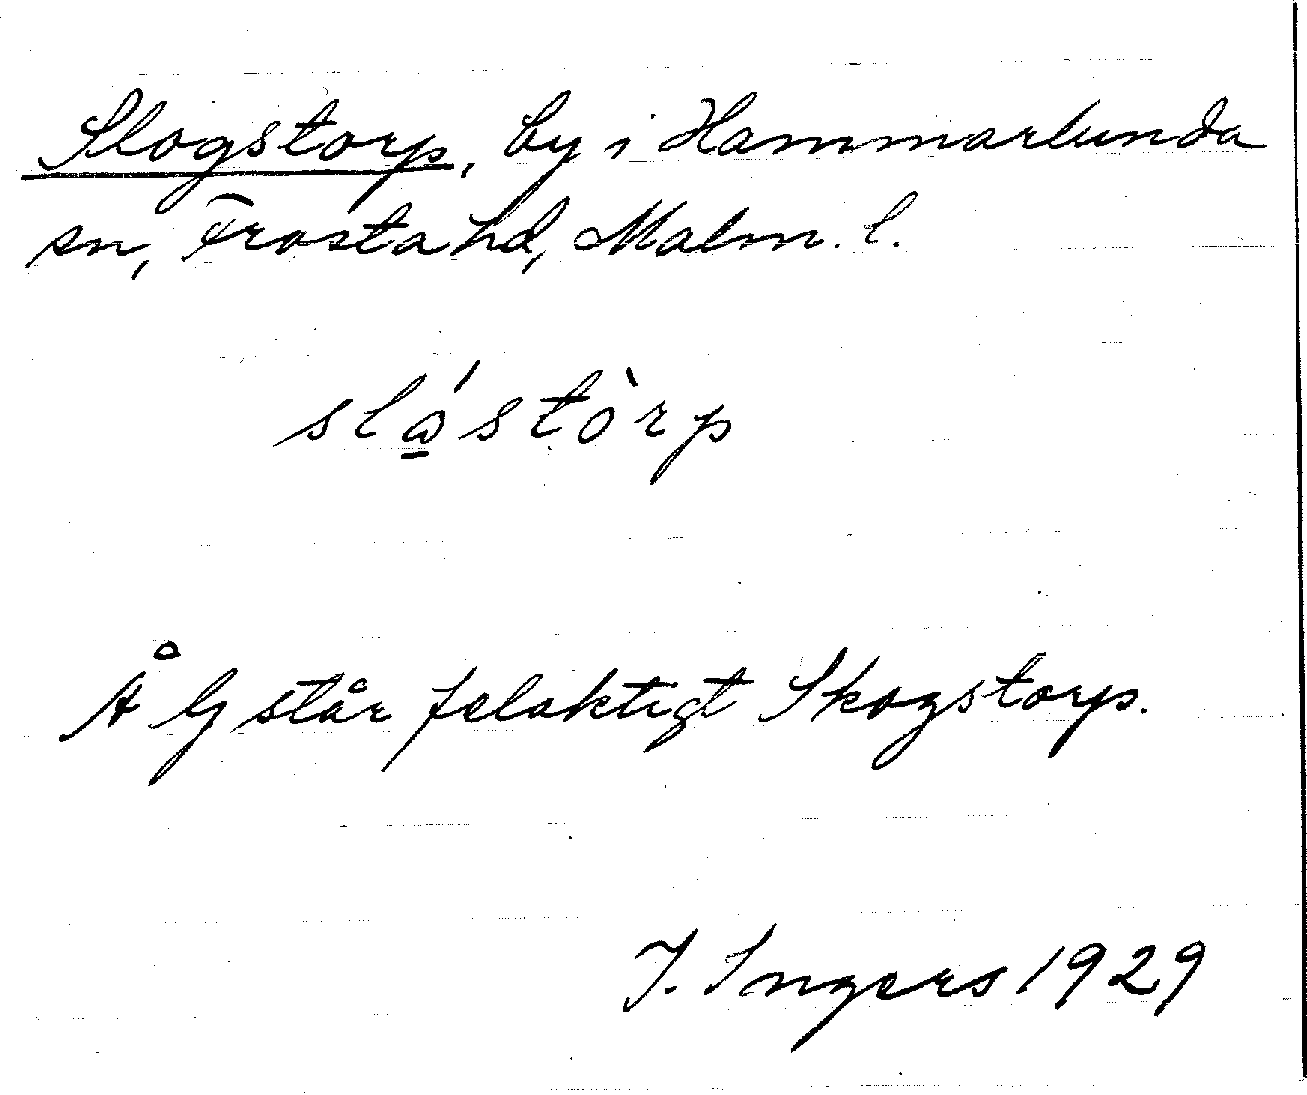 Slogstorp, by i Hammarlunda
sn, Frosta hd, Malm. l.
slo̱´stòrp
Å G står felaktigt Skogstorp.
I. Ingers 1929